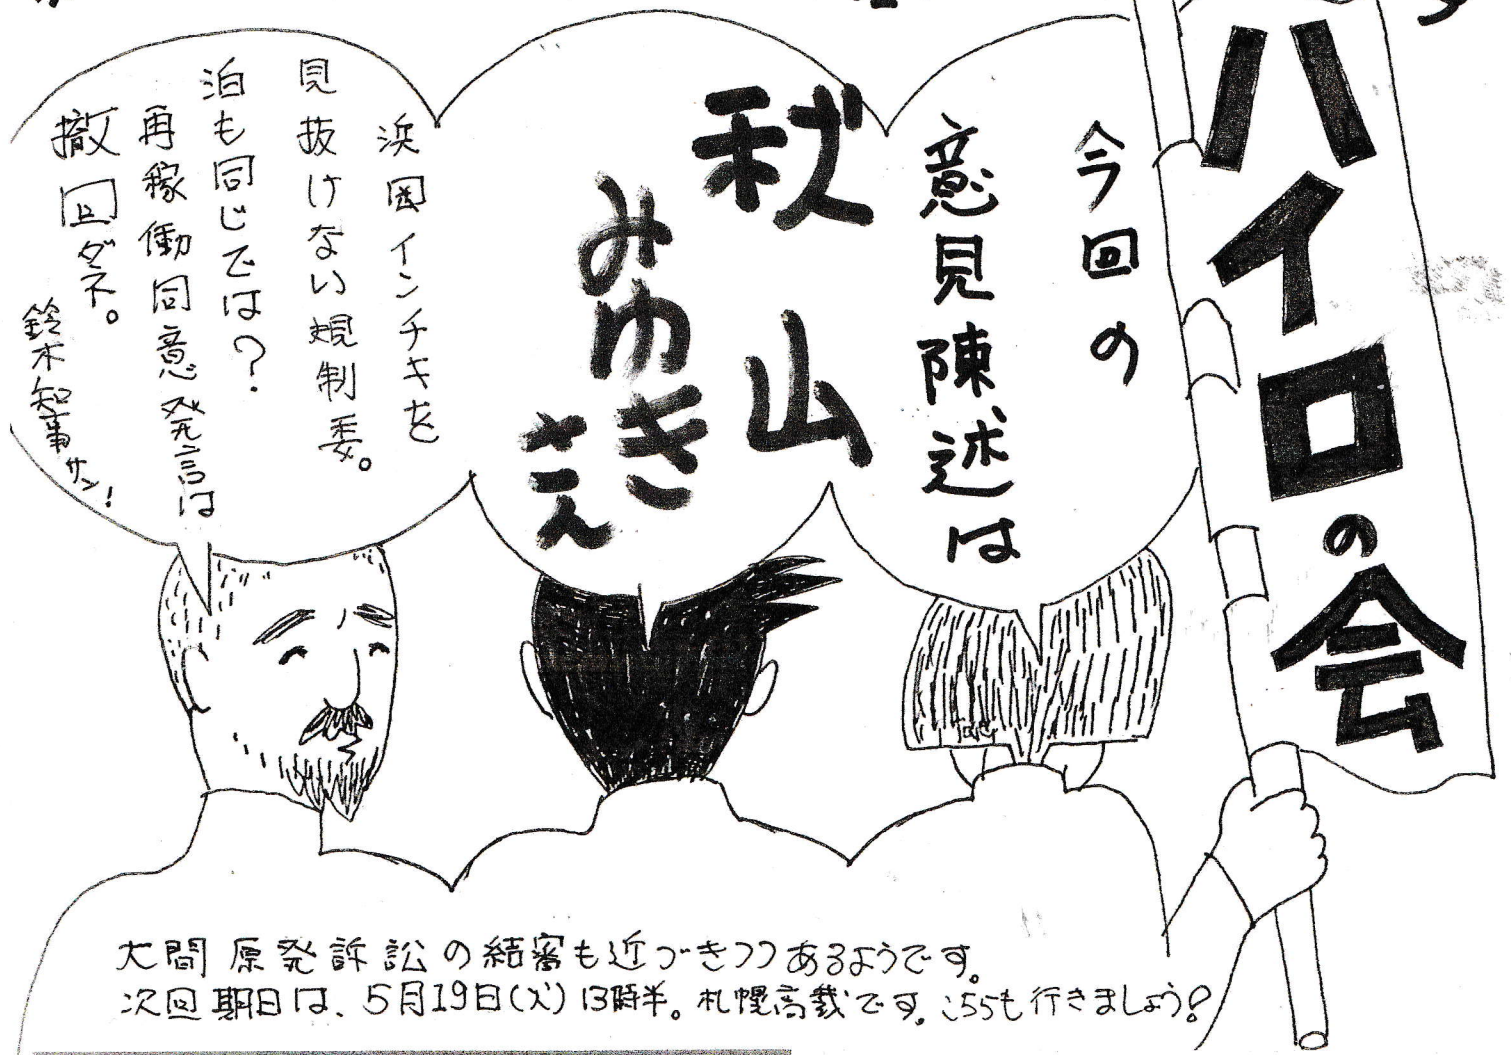 ハイロの会
今回の
意見陳述は
秋山
みゆき
さん
浜岡インチキを
見抜けない規制委。
泊も同じでは？
再稼働同意発言は
撤回ダネ。
鈴木知事サン！
大間原発訴訟の結審も近づきつつあるようです。
次回期日は、5月19日(火)13時半。札幌高裁です。こちらも行きましょう？